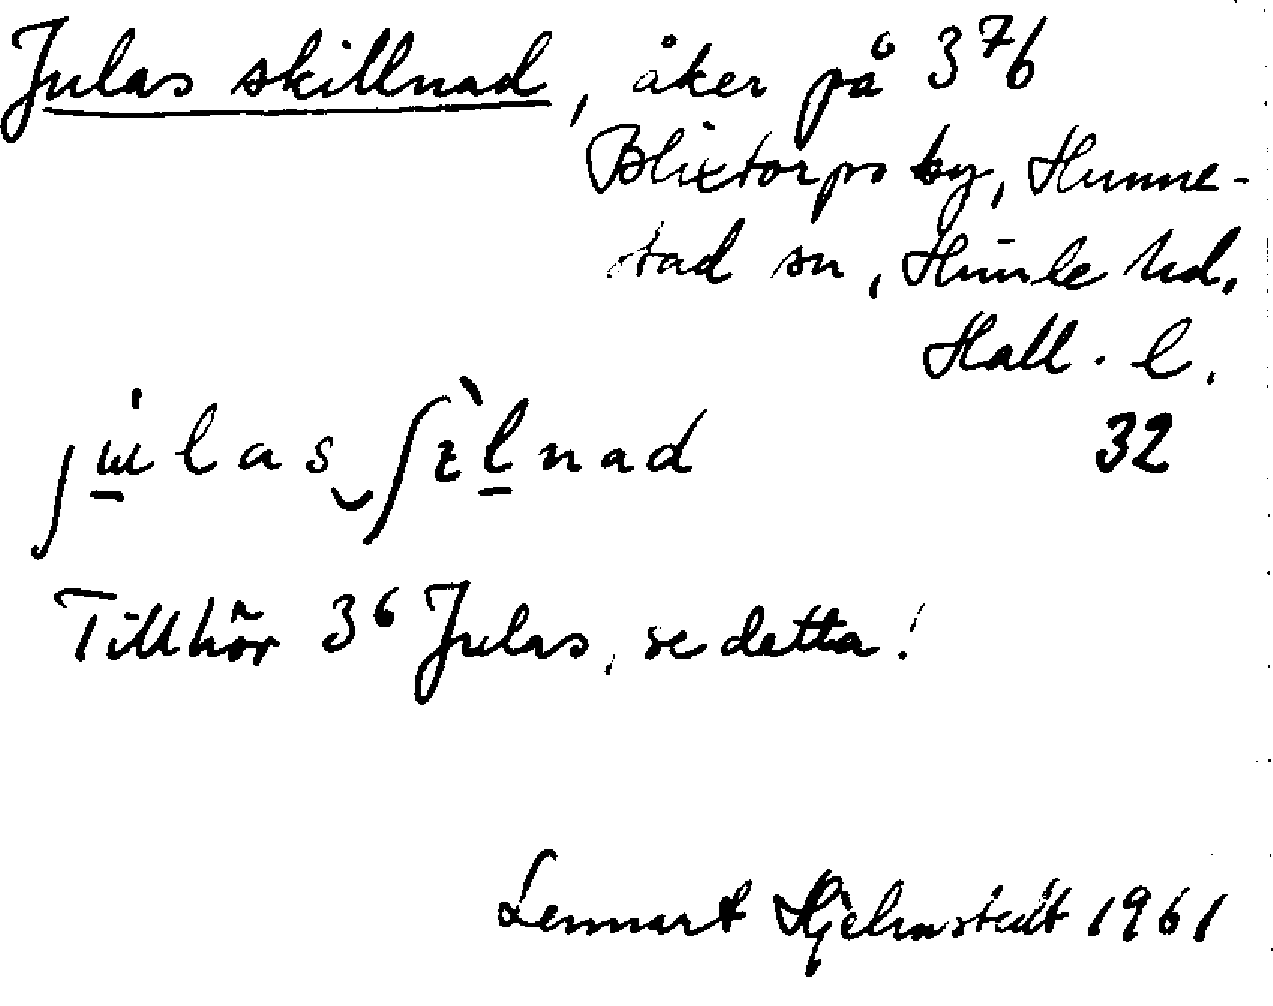 Julas skillnad, åker på 3⁷⁶
Blixtorps by, Hunne-
stad sn, Himle hd.
Hall. l.
32
Tillhör 3⁶ Julas, se detta!
Lennart Hjelmstedt 1961